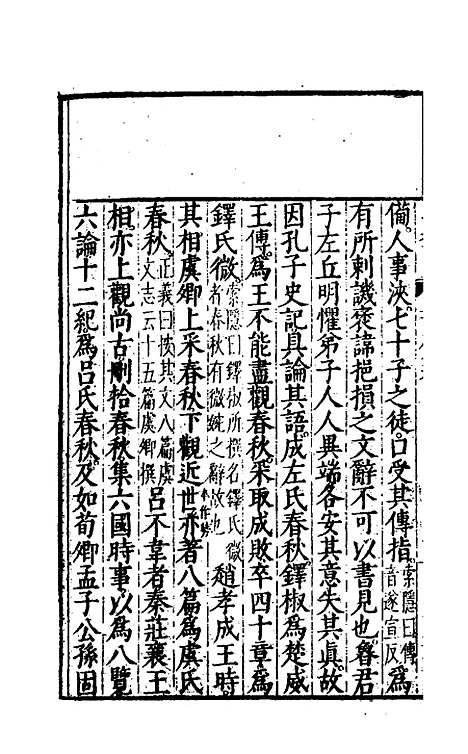 備人事浹七十子之徒口受其傳指索隱曰傳音逐宣反爲
有所刺譏褒諱挹損之文辭不可以書見也魯君
子左丘明懼弟子人人異端各安其意失其眞故
因孔子史記具論其語成左氏春秋鐸椒爲楚威
王傳爲王不能盡觀春秋采取成敗卒四十章爲
鐸氏微索隱曰鐸椒所撰名鐸氏微者春秋有微婉之辭故也趙孝成王時
其相虞卿上采春秋下觀近世亦著八篇爲虞氏
春秋正義曰按其文八篇藝文志云十五篇虞卿撰呂不韋者秦莊襄王
相亦上觀尚古刪拾春秋集六國時事以爲八覽
六論十二紀爲呂氏春秋及如荀卿孟子公孫固